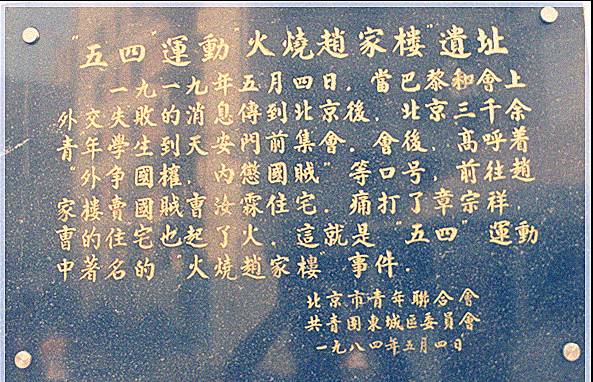 "五四"運動"火燒趙家樓"遺址
一九一九年五月四日,當巴黎和會上
外交失敗的消息傳到北京後,北京三千余
青年學生到天安門前集會.會後,高呼着
"外争國權,内懲國賊"等口号,前往趙
家樓賣國賊曹汝霖住宅.痛打了章宗祥,
曹的住宅也起了火.這就是"五四"運動
中著名的"火燒趙家樓"事件.
北京市青年聯合會
共青團東城區委員會
一九八四年五月四日